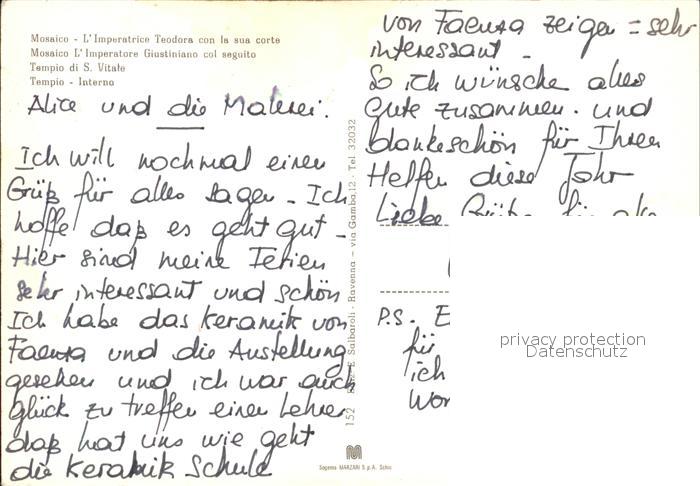 Mosaico - L'Imperatrice Teodora con la sua corte
Mosaico L'Imperatore Giustiniano col seguito
Tempio di S. Vitale
Tempio - Interno
Alice und die Malerei.
Ich will nochmal einen
Grüß für alles sagen. Ich
hoffe daß es geht gut.
Hier sind meine Ferien
sehr interessant und schön
Ich habe das Keramik von
Faenza und die Austellung
gesehen und ich war auch
glück zu treffen einen Lehrer
daß hat uns wie geht
die Keramik Schule
von Faenza zeigen = sehr
interessant.
So ich wünsche alles
Gute zusammen. und
dankeschön für Ihren
Helfen diese Jahr
Liebe Grüße für
P.S. E
für
ich
wor
152 Salbaroli - Ravenna - via Gamba, 12 - Tel. 32032
M
Sogema MARZARI S.p.A. Schio
privacy protection
Datenschutz